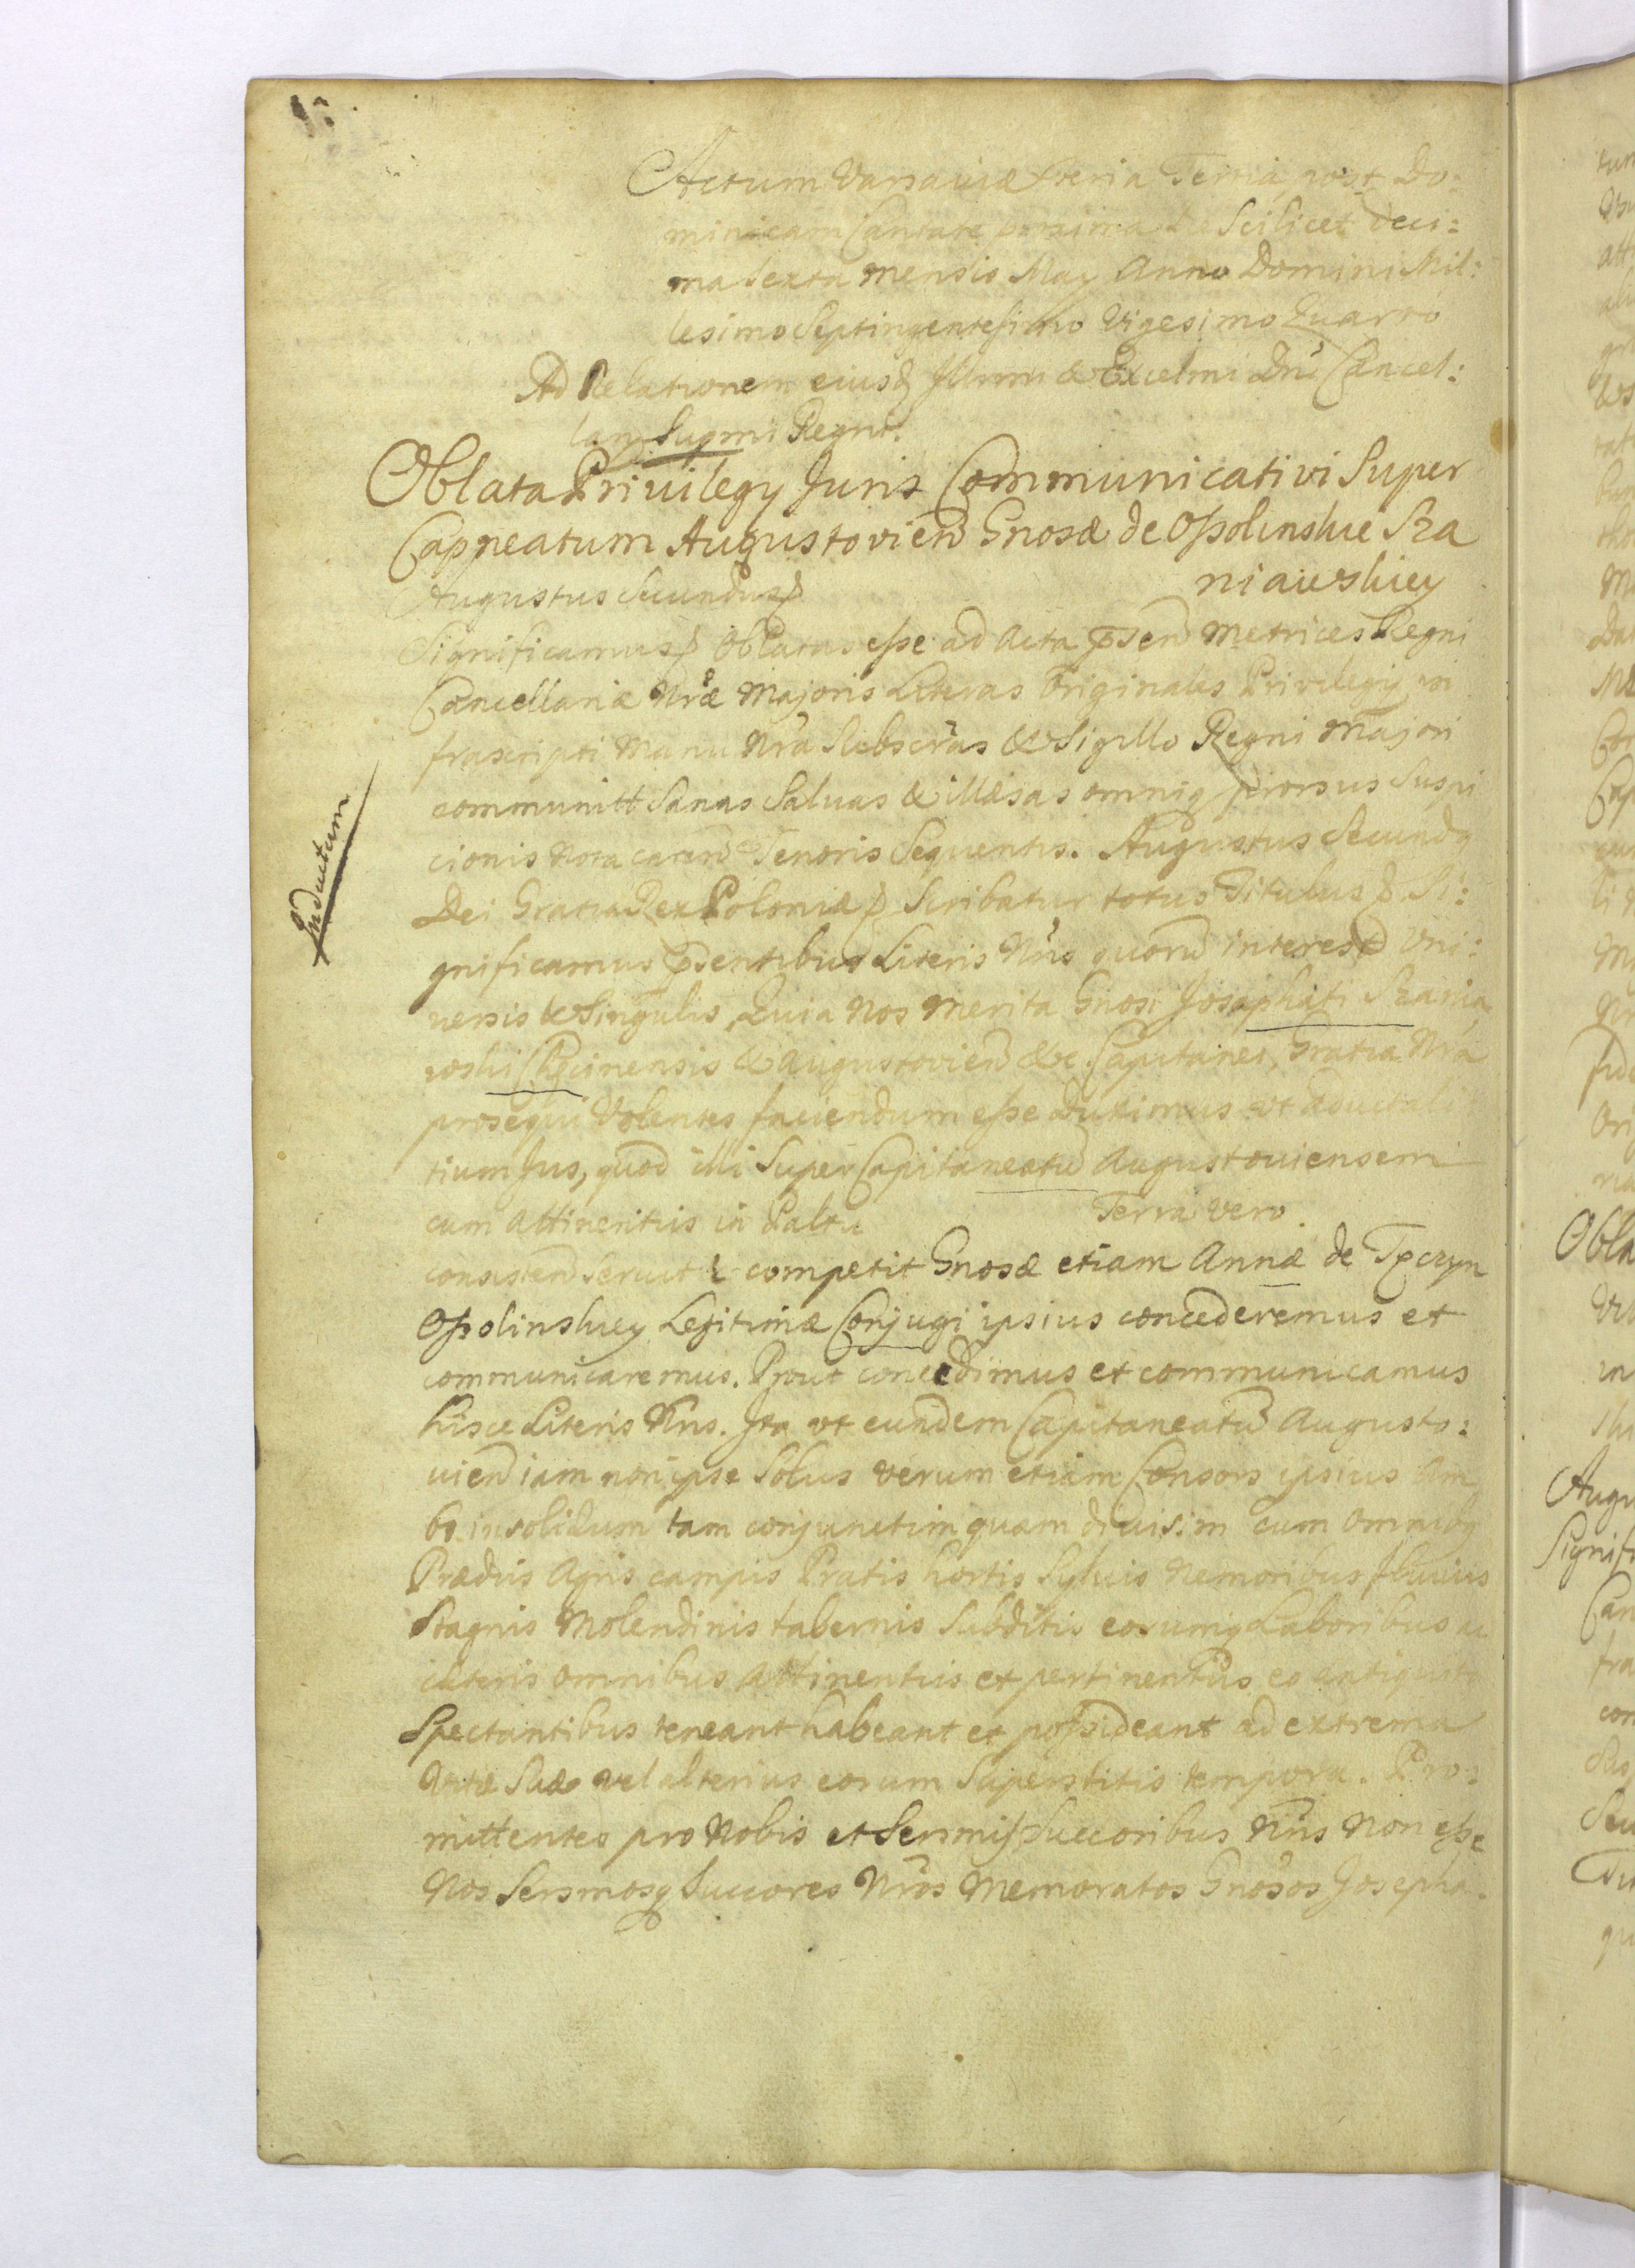 Actum Varsaviæ Feria Tertia post Do:
minicam Cantate proxima Scilicet deci:
ma Sexta Mensis May Anno Domini Mil:
lesimo Septingentesimo Vigesimo Quarto
Ad Relationem eiusd Illrmi & Excelmi Dni Cancel:
larij Supmi Regni.
Oblata Privilegy Juris Communicativi Super
Capneatum Augustovien Gnosæ de Ossolinskie Sza
niawskiey
Augustus Secundus
Significamus Oblatas esse ad Acta psen Metrices Regni
Cancellariæ Nræ Majoris Literas Originales Privilegij in
frascripti Manu Nra Subscras & Sigillo Regni Majori
communitt Sanas Salvas & illæsas omniq prorsus Suspi
cionis nota caren Tenoris Sequentis. Augustus Secundq
Dei Gratia Rex Poloniæ Scribatur totus Titulus Si:
gnificamus psentibus Literis Nris quorū interest Vni:
versis & Singulis, Quia Nos Merita Gnosi Josaphati Szania
wski Chęcinensis & Augustovien &c. Capitanei, Gratia Nra
prosequi Volentes faciendum esse duximus ut advitali
tium Jus, quod illi Super Capitaneatū Augustoviensem
cum Attinentiis in Paltu Terra vero
consisten servit & competit Gnosæ etiam Annæ de Tęczyn
Ossolinskiey Legitimæ Conjugi ipsius concederemus et
communicaremus. Prout concedimus et communicamus
hisce Literis Nris. Ita ut eundem Capitaneatū Augusto:
vien iam non ipse Solus verum etiam Consors ipsius Am
bo insolidum tam conjunctim quam divisim cum omnibq
Prædiis Agris campis Pratis hortis Sylvis Nemoribus fluviis
Stagnis Molendinis tabernis Subditis eorumq Laboribus ac
cæteris omnibus Attinentiis et pertinentiis eo antiquitus
Spectantibus teneant habeant et possideant ad extrema
Vitæ Suæ vel alterius eorum Superstitis tempora. Pro:
mittentes pro Nobis et Sermis Succoribus Nris Non esse
Nos Sersmosq Succores Nros Memoratos Gnosos Josepha
Inductum